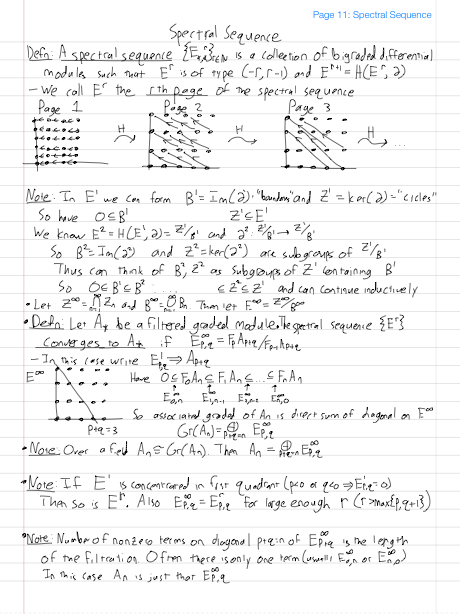 Page 11: Spectral Sequence
Spectral Sequence
Defn: A spectral sequence {E^r_{p,q}}_{r∈ℕ} is a collection of bigraded differential
modules such that E^r is of type (-r, r-1) and E^{r+1} = H(E^r, ∂)
- We call E^r the rth page of the spectral sequence
Page 1 Page 2 Page 3
H H H ...
Note: In E^1 we can form B^1 = Im(∂) "boundaries" and Z^1 = ker(∂) = "cicles"
So have 0 ⊆ B^1 Z^1 ⊆ E^1
We know E^2 = H(E^1, ∂) = Z^1/B^1 and ∂^2: Z^1/B^1 → Z^1/B^1
So B^2 = Im(∂^2) and Z^2 = ker(∂^2) are subgroups of Z^1/B^1
Thus can think of B^2, Z^2 as subgroups of Z^1 containing B^1
So 0 ⊆ B^1 ⊆ B^2 ... ⊆ Z^2 ⊆ Z^1 and can continue inductively
• Let Z^∞ = ⋂_{n=1}^∞ Z_n and B^∞ = ⋃_{n=1}^∞ B_n. Then let E^∞ = Z^∞/B^∞
• Defn: Let A_* be a filtered graded module. The spectral sequence {E^r}
Converges to A_* if E^∞_{p,q} = F_pA_{p+q}/F_{p-1}A_{p+q}
- In this case write E^1_{p,q} ⇒ A_{p+q}
E^∞ Have 0 ⊆ F_0A_n ⊆ F_1A_n ⊆ ... ⊆ F_nA_n
↑ ↑ ↑ ↑
E^∞_{0,n} E^∞_{1,n-1} E^∞_{2,n-2} E^∞_{n,0}
So associated graded of A_n is direct sum of diagonal on E^∞
p+q=3 Gr(A_n) = ⊕_{p+q=n} E^∞_{p,q}
• Note: Over a field A_n ≅ Gr(A_n). Then A_n = ⊕_{p+q=n} E^∞_{p,q}
• Note: If E^1 is concentrated in first quadrant (p<0 or q<0 ⇒ E^1_{p,q}=0)
Then so is E^r. Also E^∞_{p,q} = E^r_{p,q} for large enough r (r > max{p,q+1})
• Note: Number of nonzero terms on diagonal p+q=n of E^∞_{p,q} is the length
of the filtration. Often there is only one term (usually E^∞_{0,n} or E^∞_{n,0})
In this case A_n is just that E^∞_{p,q}